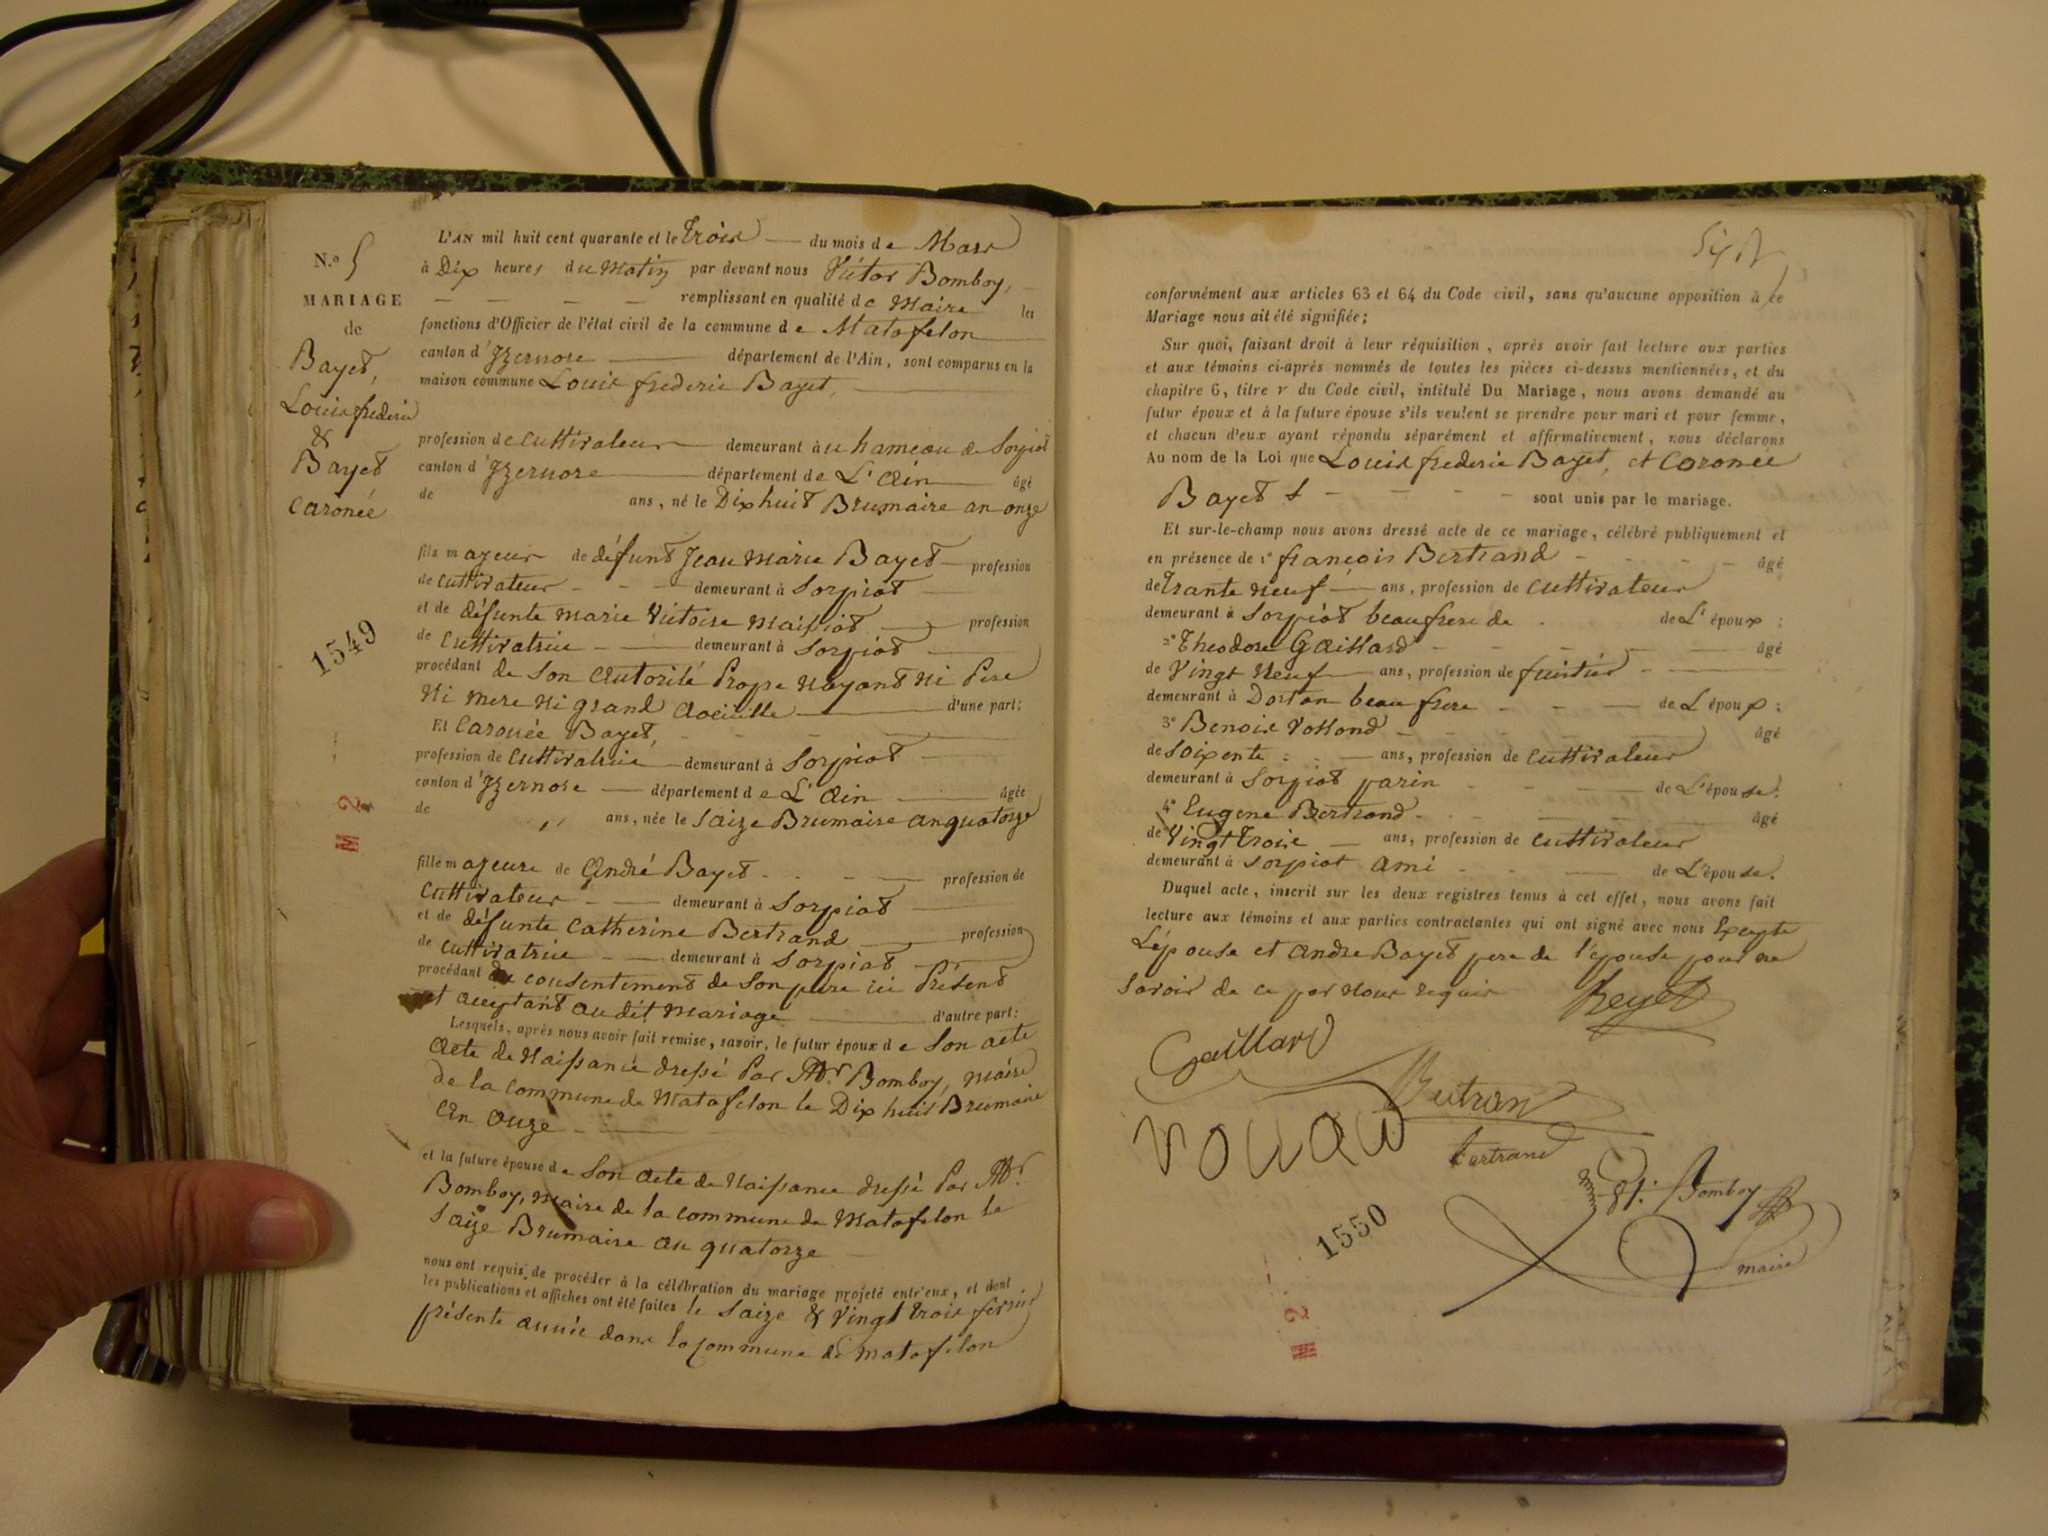 N.º 5
MARIAGE
de
Bayet,
Louis frederic
&
Bayet
Caronée
1549
M 2
L'AN mil huit cent quarante et le Trois du mois de Mars
à Dix heures du Matin par devant nous Victor Bomboy,
remplissant en qualité de Maire les
fonctions d'Officier de l'état civil de la commune de Matafelon
canton d'Izernore département de l'Ain, sont comparus en la
maison commune Louis frederic Bayet,
profession de Cultivateur demeurant au hameau de Sorpiat
canton d'Izernore département de L'Ain âgé
de ans, né le Dix huit Brumaire an onze
fils majeur de défunt Jean Marie Bayet profession
de Cultivateur demeurant à Sorpiat
et de défunte Marie Victoire Maissiat profession
de Cultivatrice demeurant à Sorpiat
procédant de Son Autorité Propre Nayant Ni Pere
Ni Mere Ni grand Aoeiulle d'une part;
Et Caronée Bayet,
profession de Cultivatrice demeurant à Sorpiat
canton d'Izernore département de L'Ain âgée
de ,, ans, née le Saize Brumaire an quatorze
fille majeure de André Bayet profession de
Cultivateur demeurant à Sorpiat
et de défunte Catherine Bertrand profession
de Cultivatrice demeurant à Sorpiat
procédant du consentement de Son pere ici Présent
et acceptant au dit Mariage d'autre part:
Lesquels, après nous avoir fait remise, savoir, le futur époux de Son acte
Acte de Naissance dressé Par Mr. Bomboy, Maire
de la commune de Matafelon le Dix huit Brumaire
An onze
et la future épouse de Son Acte de Naissance dressé Par Mr.
Bomboy, Maire de la commune de Matafelon le
Saize Brumaire an quatorze
nous ont requis de procéder à la célébration du mariage projeté entr'eux, et dont
les publications et affiches ont été faites le Saize & Vingt trois fevrier
présente année dans la Commune de Matafelon
Six
conformément aux articles 63 et 64 du Code civil, sans qu'aucune opposition à ce
Mariage nous ait été signifiée;
Sur quoi, faisant droit à leur réquisition, après avoir fait lecture aux parties
et aux témoins ci-après nommés de toutes les pièces ci-dessus mentionnées, et du
chapitre 6, titre v du Code civil, intitulé Du Mariage, nous avons demandé au
futur époux et à la future épouse s'ils veulent se prendre pour mari et pour femme,
et chacun d'eux ayant répondu séparément et affirmativement, nous déclarons
Au nom de la Loi que Louis frederic Bayet, et Caronée
Bayet sont unis par le mariage.
Et sur-le-champ nous avons dressé acte de ce mariage, célébré publiquement et
en présence de 1º françois Bertrand âgé
de Trante Neuf ans, profession de Cultivateur
demeurant à Sorpiat beaufrere de de L'époux;
2º Theodore Gaillard âgé
de Vingt Neuf ans, profession de fuirtier
demeurant à Dortan beau frere de L'époux;
3º Benoit Volland âgé
de Soixente ans, profession de Cultivateur
demeurant à Sorpiat parin de L'épouse.
4º Eugene Bertrand âgé
de Vingt Trois ans, profession de Cultivateur
demeurant à Sorpiat Ami de L'épouse.
Duquel acte, inscrit sur les deux registres tenus à cet effet, nous avons fait
lecture aux témoins et aux parties contractantes qui ont signé avec nous Exepte
L'épouse et Andre Bayet pere de l'épouse pour ne
Savoir de ce par Nous requis Beyet
Gaillard
Bertrand
Volland
bertrand
Vt: Bomboy
maire
1550
M 2